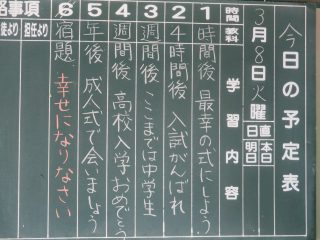 今日の予定表
3月8日火曜
日直
本日
明日
時間
教科
学習内容
1
時間後 最幸の式にしよう
2
4時間後 入試がんばれ
3
週間後 ここまでは中学生
4
週間後 高校入学おめでとう
5
年後 成人式で会いましょう
6
宿題 幸せになりなさい
絡事項
担任より
徒より